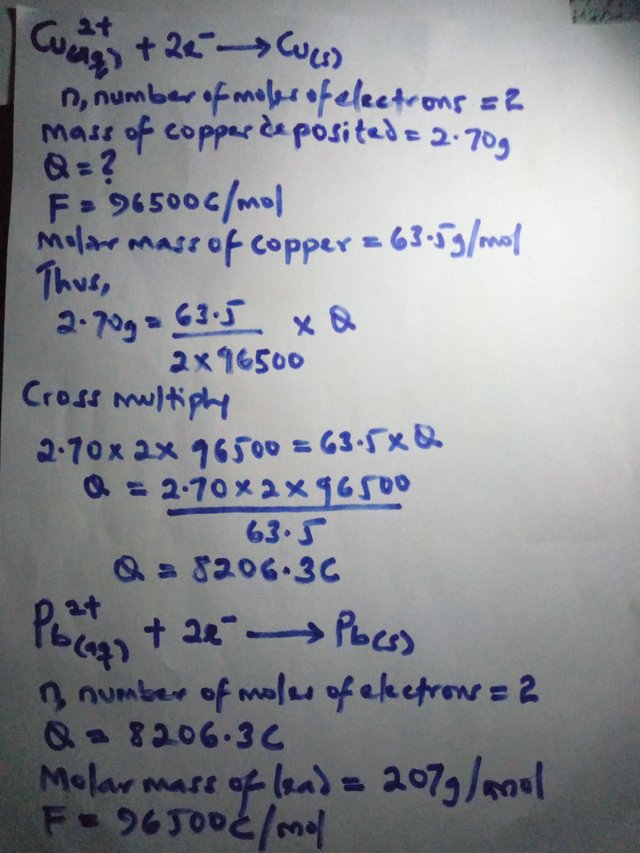 Cu²⁺(aq) + 2e⁻ → Cu(s)
n, number of moles of electrons = 2
mass of copper deposited = 2.70g
Q = ?
F = 96500C/mol
Molar mass of copper = 63.5g/mol
Thus,
2.70g = 63.5 / 2 x 96500 x Q
Cross multiply
2.70 x 2 x 96500 = 63.5 x Q
Q = 2.70 x 2 x 96500 / 63.5
Q = 8206.3C
Pb²⁺(aq) + 2e⁻ → Pb(s)
n, number of moles of electrons = 2
Q = 8206.3C
Molar mass of lead = 207g/mol
F = 96500C/mol